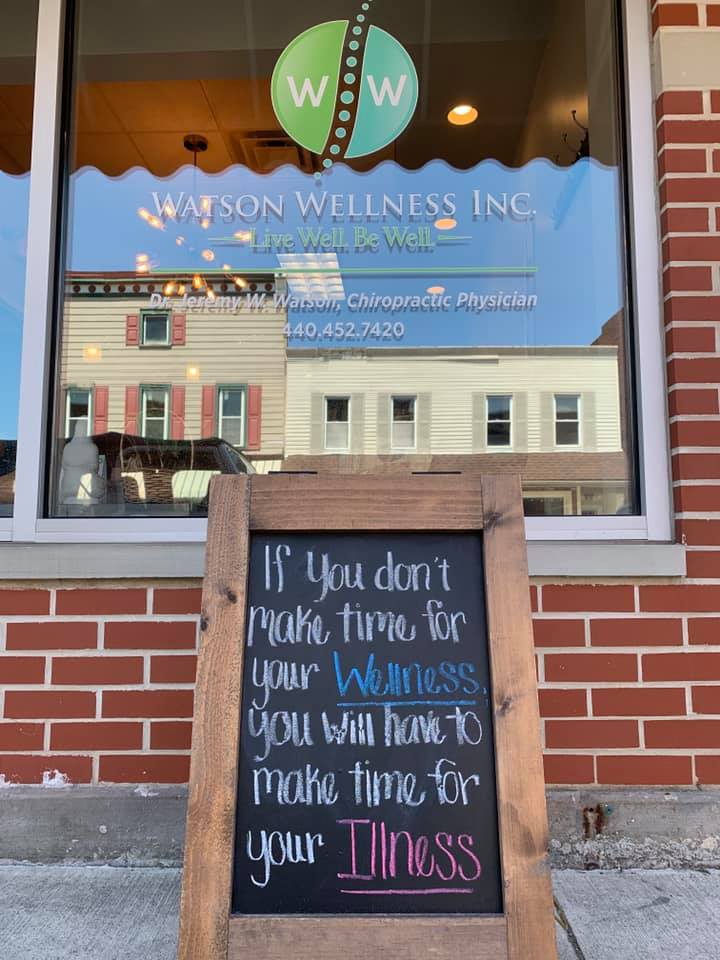 W W
WATSON WELLNESS INC.
Live Well. Be Well.
Dr. Jeremy W. Watson, Chiropractic Physician
440.452.7420
If you don't
make time for
your Wellness,
you will have to
make time for
your Illness